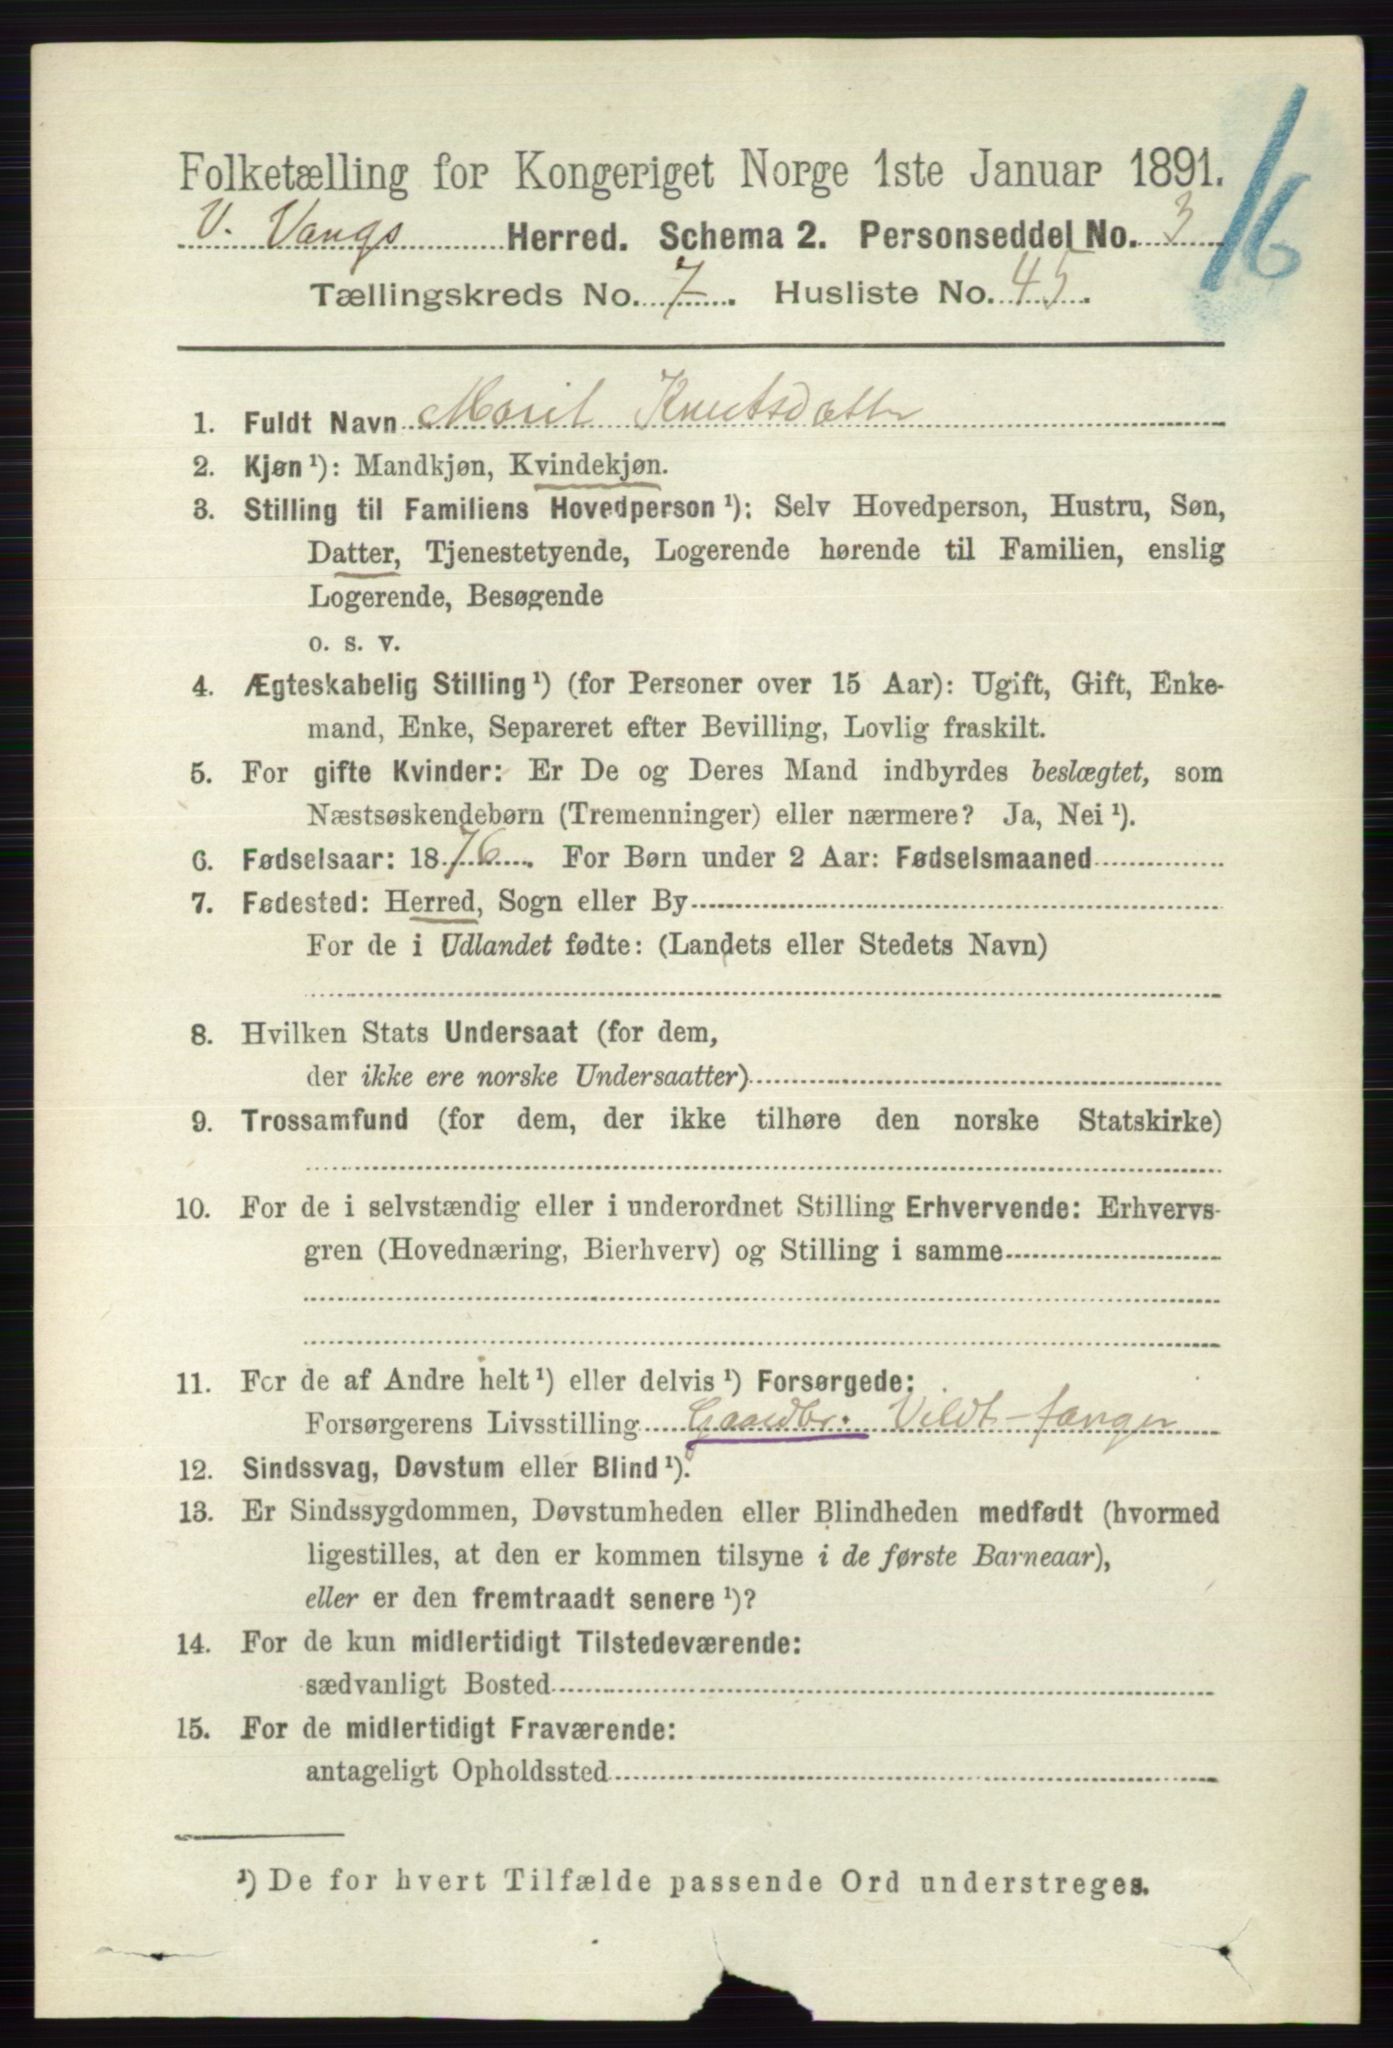 Folketælling for Kongeriget Norge 1ste Januar 1891.
16
V. Vangs Herred. Schema 2. Personseddel No. 3
Tællingskreds No. 7. Husliste No. 45.
1. Fuldt Navn Marit Knutsdatter
2. Kjøn¹): Mandkjøn, Kvindekjøn.
3. Stilling til Familiens Hovedperson¹): Selv Hovedperson, Hustru, Søn,
Datter, Tjenestetyende, Logerende hørende til Familien, enslig
Logerende, Besøgende
o. s. v.
4. Ægteskabelig Stilling¹) (for Personer over 15 Aar): Ugift, Gift, Enke-
mand, Enke, Separeret efter Bevilling, Lovlig fraskilt.
5. For gifte Kvinder: Er De og Deres Mand indbyrdes beslægtet, som
Næstsøskendebørn (Tremenninger) eller nærmere? Ja, Nei¹).
6. Fødselsaar: 1876. For Børn under 2 Aar: Fødselsmaaned
7. Fødested: Herred, Sogn eller By
For de i Udlandet fødte: (Landets eller Stedets Navn)
8. Hvilken Stats Undersaat (for dem,
der ikke ere norske Undersaatter)
9. Trossamfund (for dem, der ikke tilhøre den norske Statskirke)
10. For de i selvstændig eller i underordnet Stilling Erhvervende: Erhvervs-
gren (Hovednæring, Bierhverv) og Stilling i samme
11. For de af Andre helt¹) eller delvis¹) Forsørgede:
Forsørgerens Livsstilling Gaardbr. Vildt-fanger
12. Sindssvag, Døvstum eller Blind¹).
13. Er Sindssygdommen, Døvstumheden eller Blindheden medfødt (hvormed
ligestilles, at den er kommen tilsyne i de første Barneaar),
eller er den fremtraadt senere¹)?
14. For de kun midlertidigt Tilstedeværende:
sædvanligt Bosted
15. For de midlertidigt Fraværende:
antageligt Opholdssted
¹) De for hvert Tilfælde passende Ord understreges.